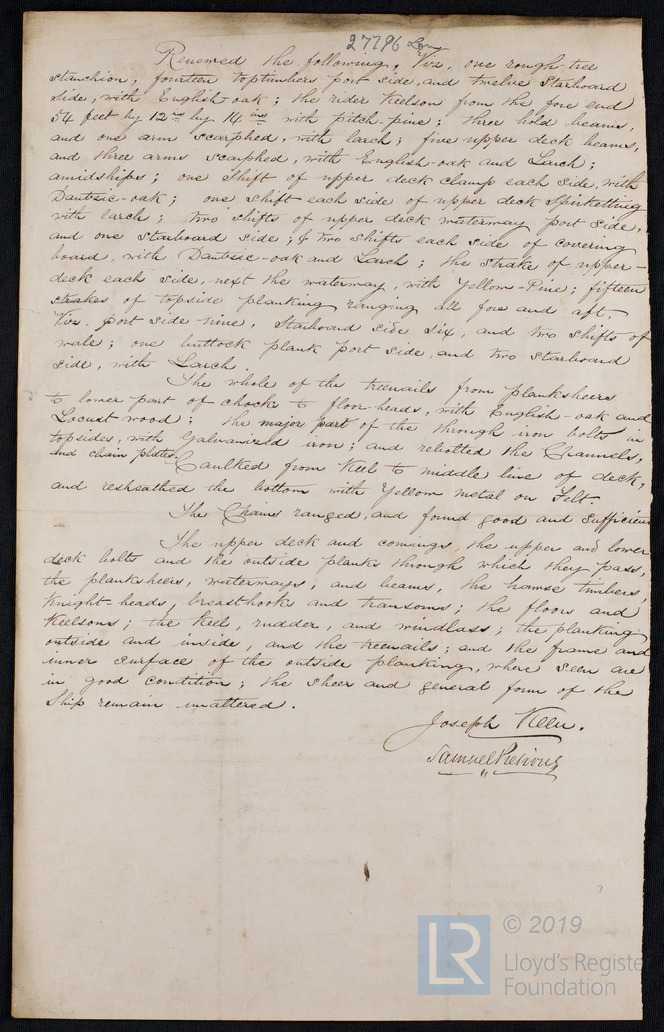 27796 Lon
Renewed the following, Viz, one rough-tree
stanchion, fourteen toptimbers port side, and twelve Starboard
side, with English oak; the rider Keelson from the fore end
54 feet by 12 ins by 14 ins with pitch-pine; three hold beams,
and one arm scarphed, with larch; five upper deck beams,
and three arms scarphed, with English-oak and Larch;
amidships; one Shift of upper deck clamp each side, with
Dantsic-oak; one shift each side of upper deck Spirketting
with larch; two shifts of upper deck waterway port side,
and one starboard side; & two shifts each side of covering
board, with Dantsic-oak and Larch; the strake of upper-
deck each side, next the waterway, with Yellow-Pine; fifteen
strakes of topside planking ranging all fore and aft.
Viz. port side nine, Starboard side six, and two shifts of
wale; one buttock plank port side, and two starboard
side, with Larch.
The whole of the treenails from planksheers
to lower part of chocks to floor-heads, with English-oak and
Locust-wood; the major part of the through iron bolts in
topsides, with Galvanized iron; and rebolted the Channels,
and chain plates. Caulked from Keel to middle line of deck,
and resheathed the bottom with Yellow metal on Felt.
The Chains ranged, and found good and Sufficient
The upper deck and comings, the upper and lower
deck bolts and the outside planks through which they pass,
the planksheers, waterways, and beams, the hawse timbers,
Knight-heads, breasthooks and transoms; the floors and
Keelsons; the Keel, rudder, and windlass; the planking
outside and inside, and the treenails; and the frame and
inner surface of the outside planking, where seen are
in good condition; the sheer and general form of the
Ship remain unaltered.
Joseph Keen.
Samuel Pretious
LR © 2019
Lloyd's Register
Foundation